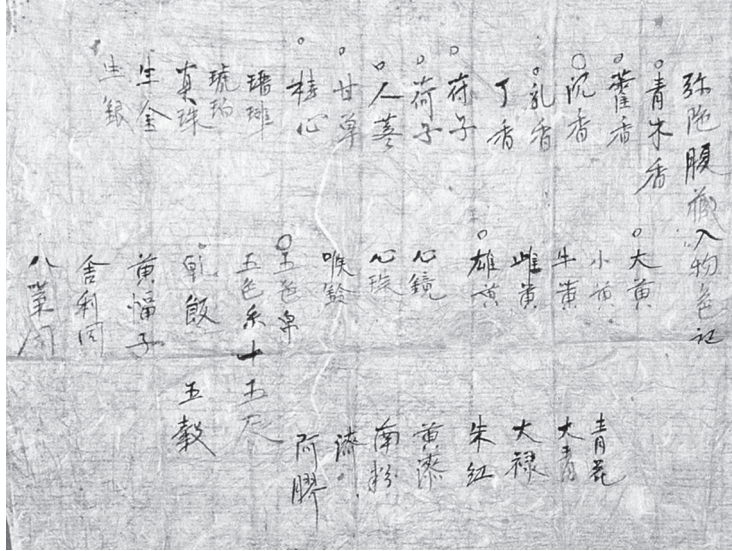 弥陁腹藏入物色記
○青木香
○藿香
○沉香
○乳香
丁香
○苻子
○荷子
○人蔘
○甘草
○桂心
琥珀
真珠
生金
生銀
○大黄
小黄
牛黄
雌黄
○雄黄
心鏡
心珠
喉鈴
○五色帛
五色糸十五尺
乾飯 五穀
黄幅子
舍利同
八葉同
青花
大青
大禄
朱紅
黄漆
南粉
漆
阿膠